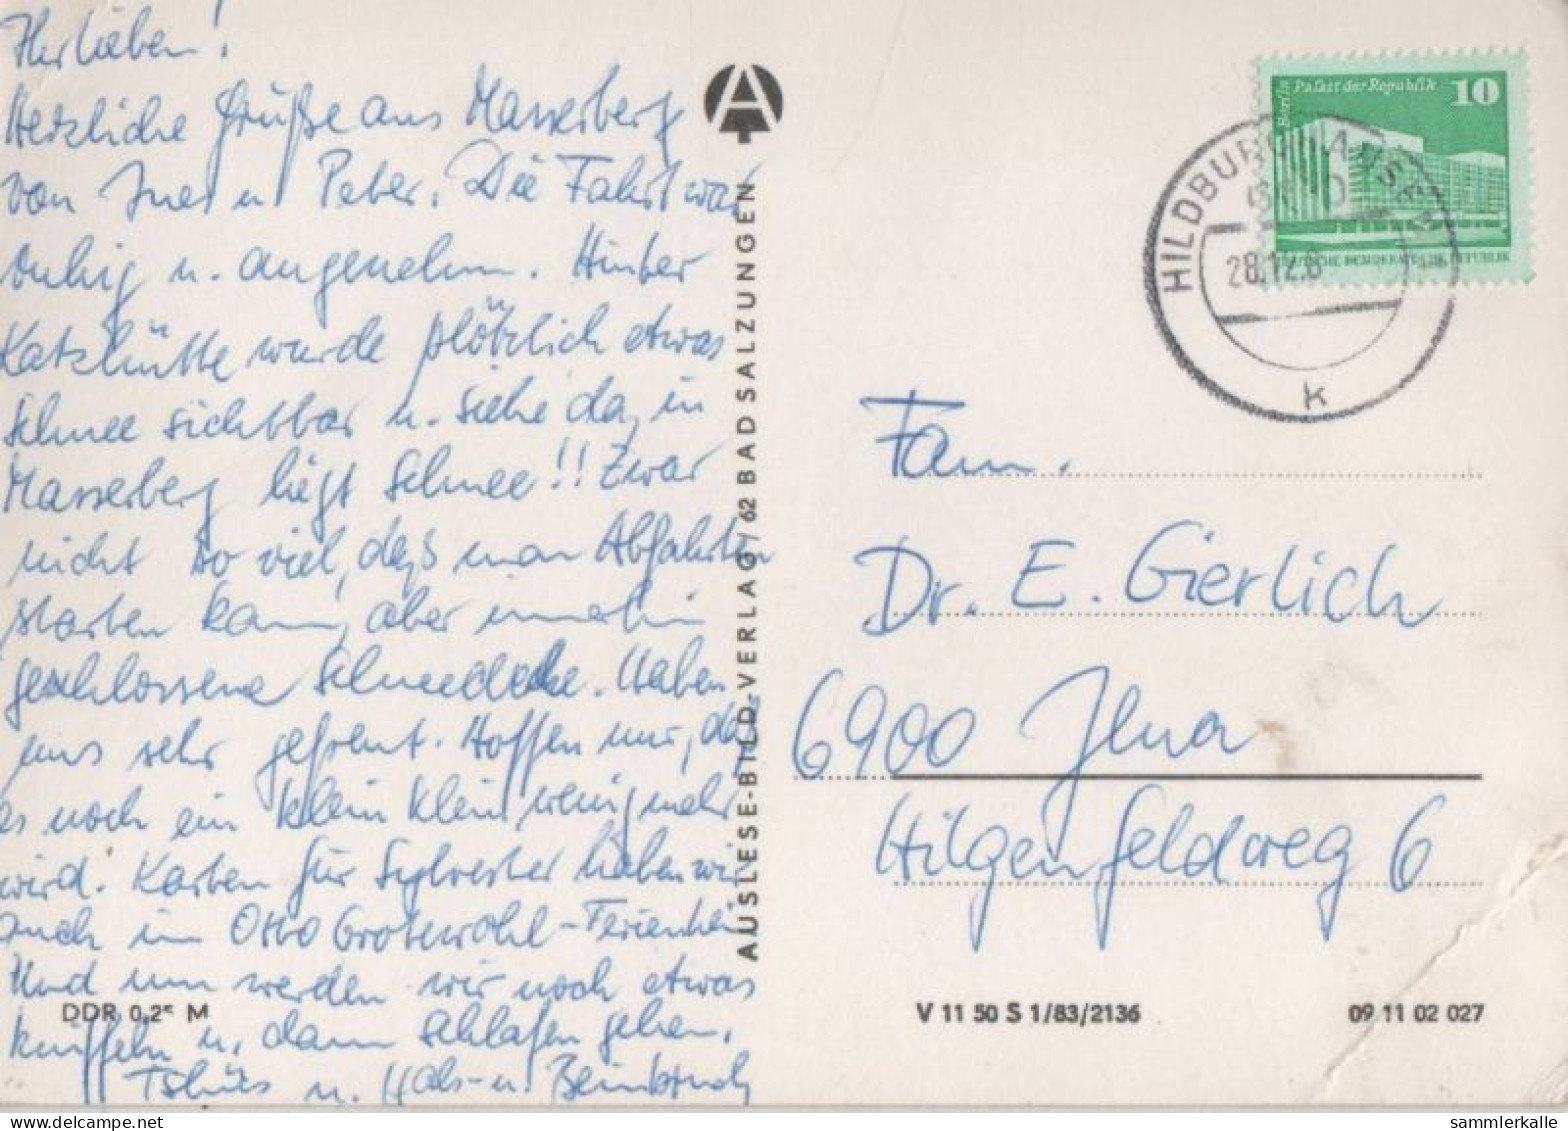 Ihr Lieben!
Herzliche Grüße aus Masserberg
von Ines u Peter. Die Fahrt war
ruhig u. angenehm. Hinter
Katzhütte wurde plötzlich etwas
Schnee sichtbar u. siehe da, in
Masserberg liegt Schnee!! Zwar
nicht so viel, daß man Abfahrten
starten kann, aber immerhin
geschlossene Schneedecke. Haben
uns sehr gefreut. Hoffen nur, daß
es noch ein klein klein wenig mehr
wird. Karten für Sylvester haben wir
auch im Otto Grotewohl-Ferienheim
Und nun werden wir noch etwas
knüffeln u. dann schlafen gehen.
Tschüs u. Hals- u. Beinbruch
DDR 0,25 M
AUSLESE-BILD-VERLAG / 62 BAD SALZUNGEN
Berlin Palast der Republik 10
DEUTSCHE DEMOKRATISCHE REPUBLIK
HILDBURGHAUSEN
28.12.8
k
Fam.
Dr. E. Gierlich
6900 Jena
Hilgenfeldweg 6
V 11 50 S 1/83/2136
09 11 02 027
sammlerkalle